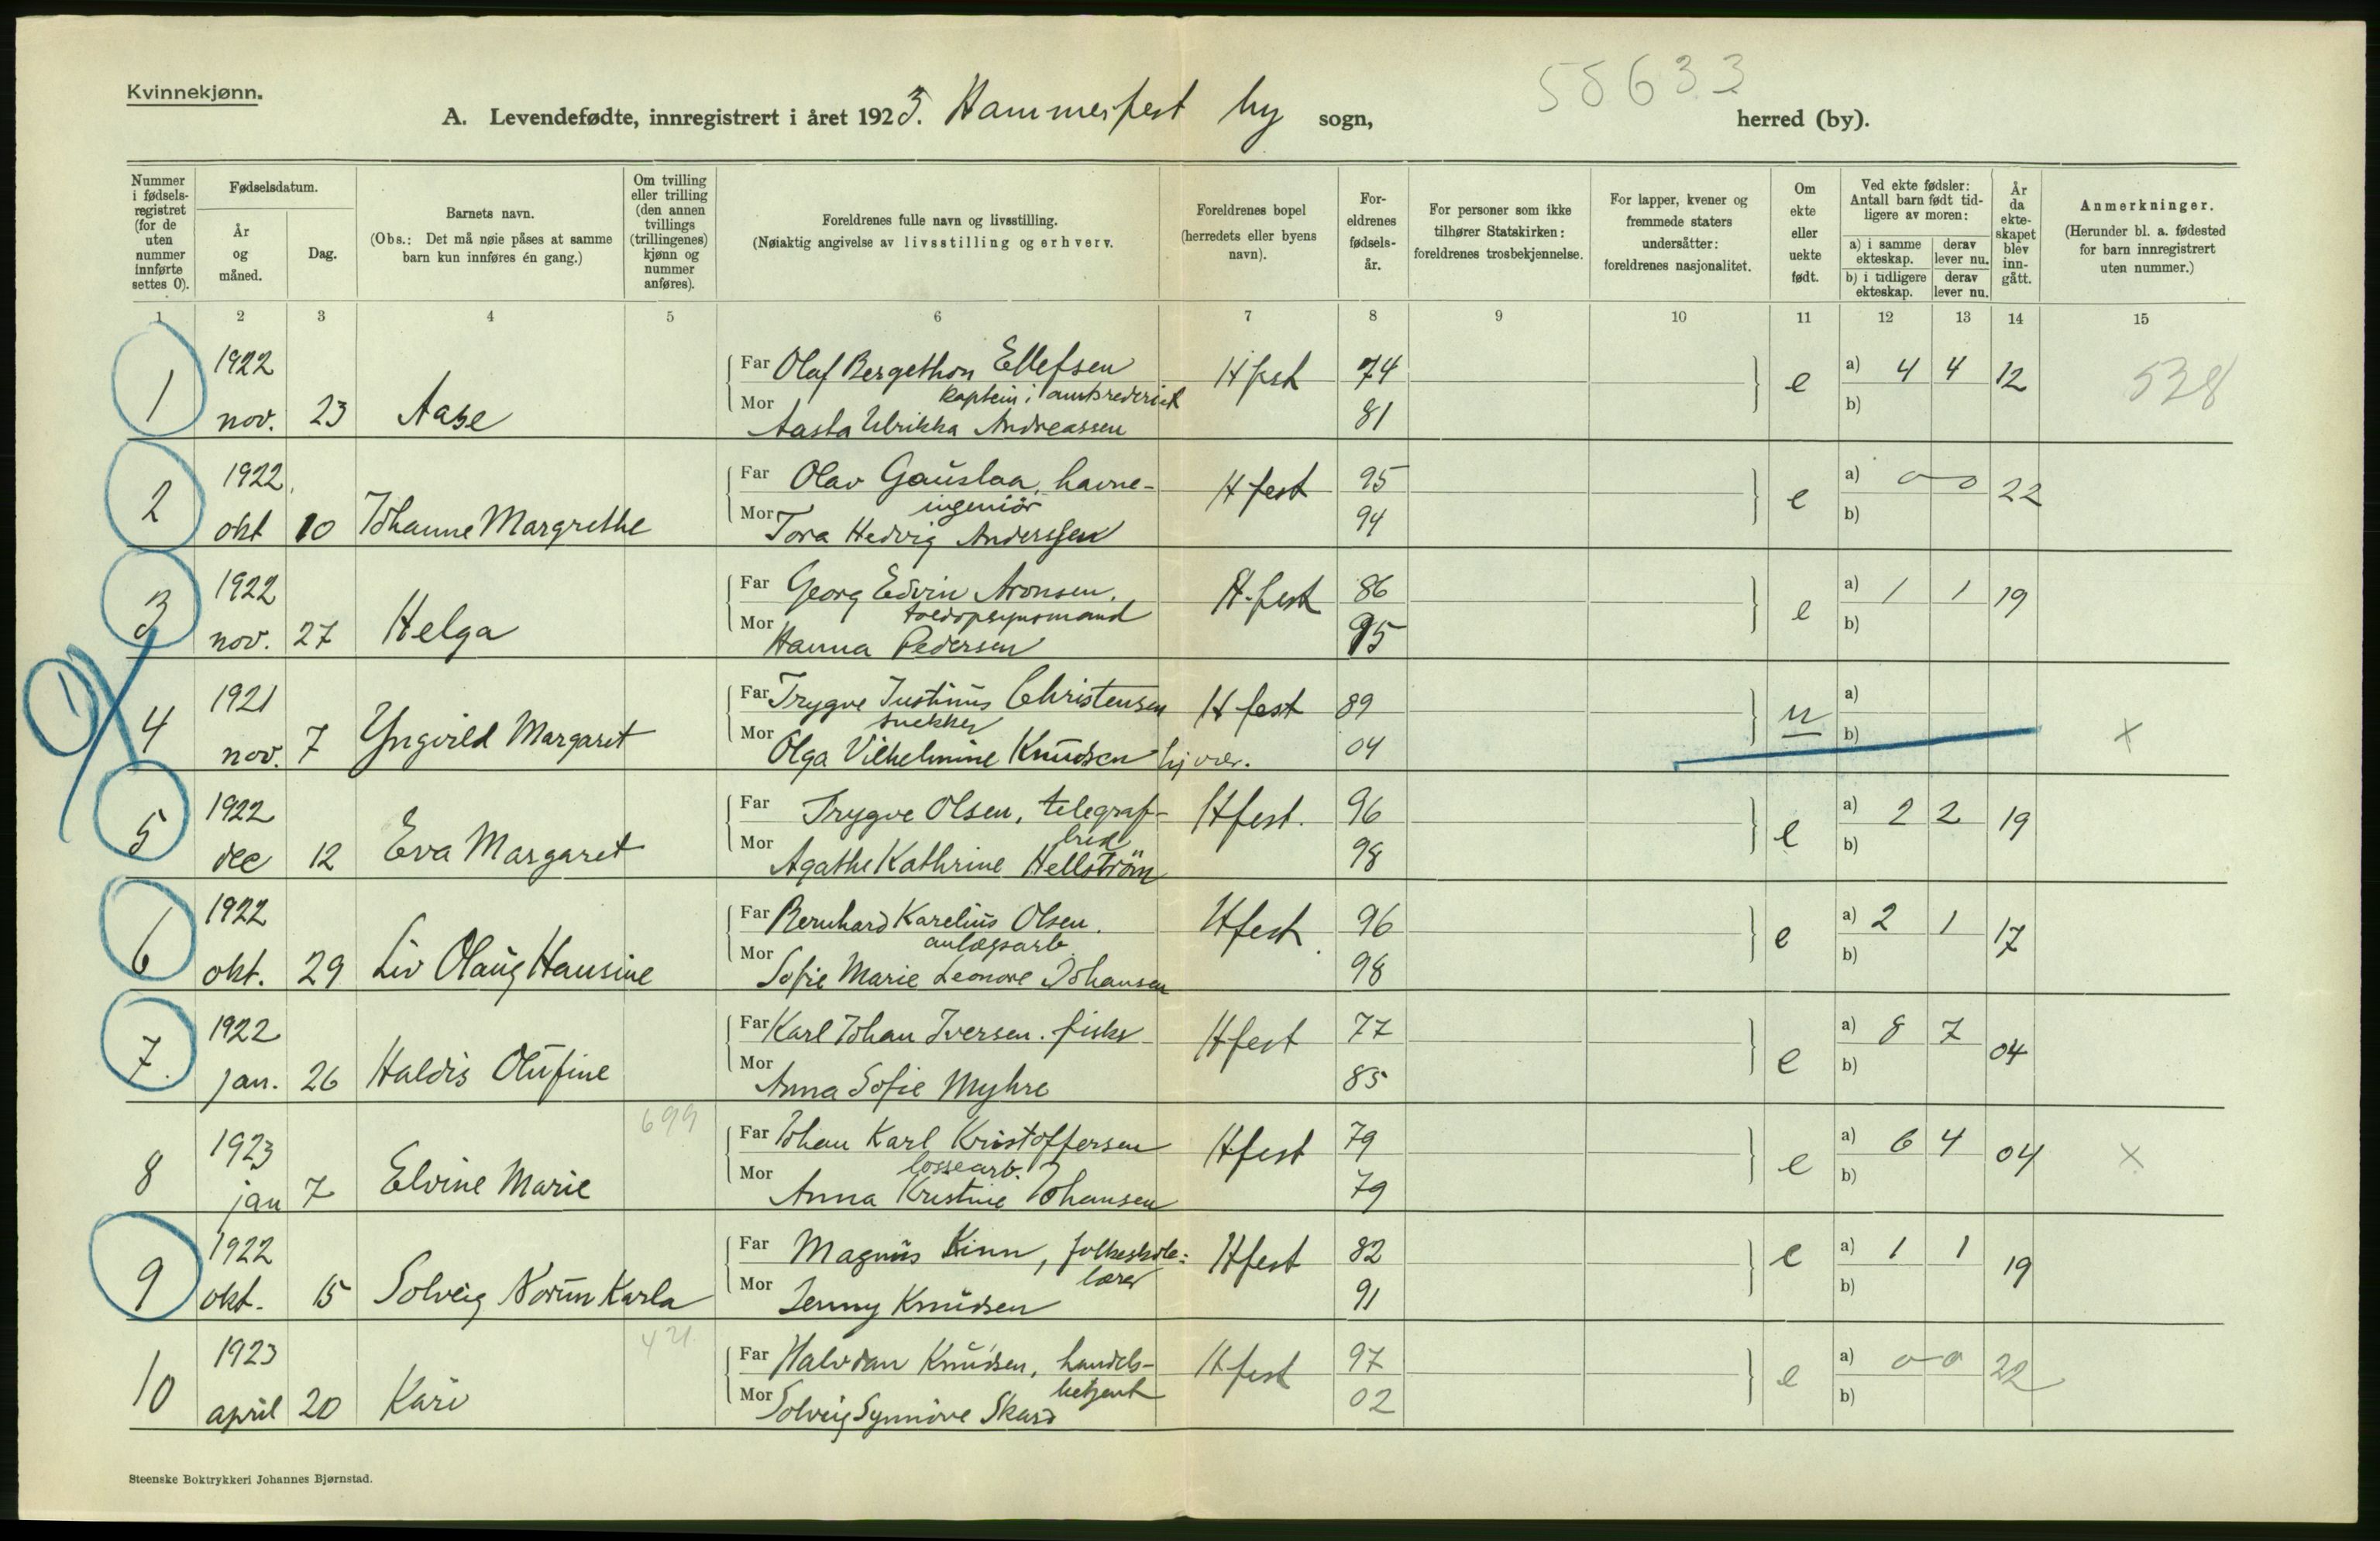 Kvinnekjønn.
55633
A. Levendefødte, innregistrert i året 1923. Hammerfest by sogn, herred (by).
Nummer i fødsels-registret (for de uten nummer innførte settes 0).
Fødselsdatum.
År og måned.
Dag.
Barnets navn.
(Obs.: Det må nøie påses at samme barn kun innføres én gang.)
Om tvilling eller trilling (den annen tvillings (trillingenes) kjønn og nummer anføres).
Foreldrenes fulle navn og livsstilling.
(Nøiaktig angivelse av livsstilling og erhverv.
Foreldrenes bopel (herredets eller byens navn).
For-eldrenes fødsels-år.
For personer som ikke tilhører Statskirken: foreldrenes trosbekjennelse.
For lapper, kvener og fremmede staters undersåtter: foreldrenes nasjonalitet.
Om ekte eller uekte født.
Ved ekte fødsler: Antall barn født tid-ligere av moren:
a) i samme ekteskap.
derav lever nu.
b) i tidligere ekteskap.
derav lever nu.
År da ekte-skapet blev inn-gått.
Anmerkninger.
(Herunder bl. a. fødested for barn innregistrert uten nummer.)
1 2 3 4 5 6 7 8 9 10 11 12 13 14 15
1 1922 nov. 23 Aase
Far Olaf Bergethon Ellefsen H fest 74 e a) 4 4 12 538
kaptein i amtsrederiet
Mor Aasta Ulrikka Andreassen 81 b)
2 1922. okt 10 Johanne Margrethe
Far Olav Gauslaa, havne- H fest 95 e a) 0 0 22
ingeniör
Mor Tora Hedvig Anderssen 94 b)
3 1922 nov. 27 Helga
Far Georg Edvin Aronsen. H.fest 86 e a) 1 1 19
toldopsynsmand
Mor Hanna Pedersen 95 b)
1
4 1921 nov. 7 Yngvild Margaret
Far Trygve Justinus Christensen H fest 89 u a) x
snekker
Mor Olga Vilhelmine Knudsen hj vær. 04 b)
5 1922 dec 12 Eva Margaret
Far Trygve Olsen, telegraf- Hfest. 96 e a) 2 2 19
Mor Agathe Kathrine Hellström 98 b)
6 1922 okt. 29 Liv Olaug Hansine
Far Bernhard Karelius Olsen. Hfest. 96 e a) 2 1 17
anlægsarb.
Mor Sofie Marie Leonore Johansen 98 b)
7. 1922 jan. 26 Haldis Olufine
Far Karl Johan Iversen. fisker Hfest 77 e a) 8 7 04
Mor Anna Sofie Myhre 85 b)
699
8 1923 jan 7 Elvine Marie
Far Johan Karl Kristoffersen Hfest 79 e a) 6 4 04 x
lossearb.
Mor Anna Kristine Johansen 79 b)
9 1922 okt. 15 Solveig Norun Karla
Far Magnus Finn, folkeskole- Hfest 82 e a) 1 1 19
lærer
Mor Jenny Knudsen 91 b)
421
10 1923 april 20 Kari
Far Halvdan Knudsen, handels- H fest 97 e a) 0 0 22
betjent
Mor Solveig Synnöve Skard 02 b)
Steenske Boktrykkeri Johannes Bjørnstad.